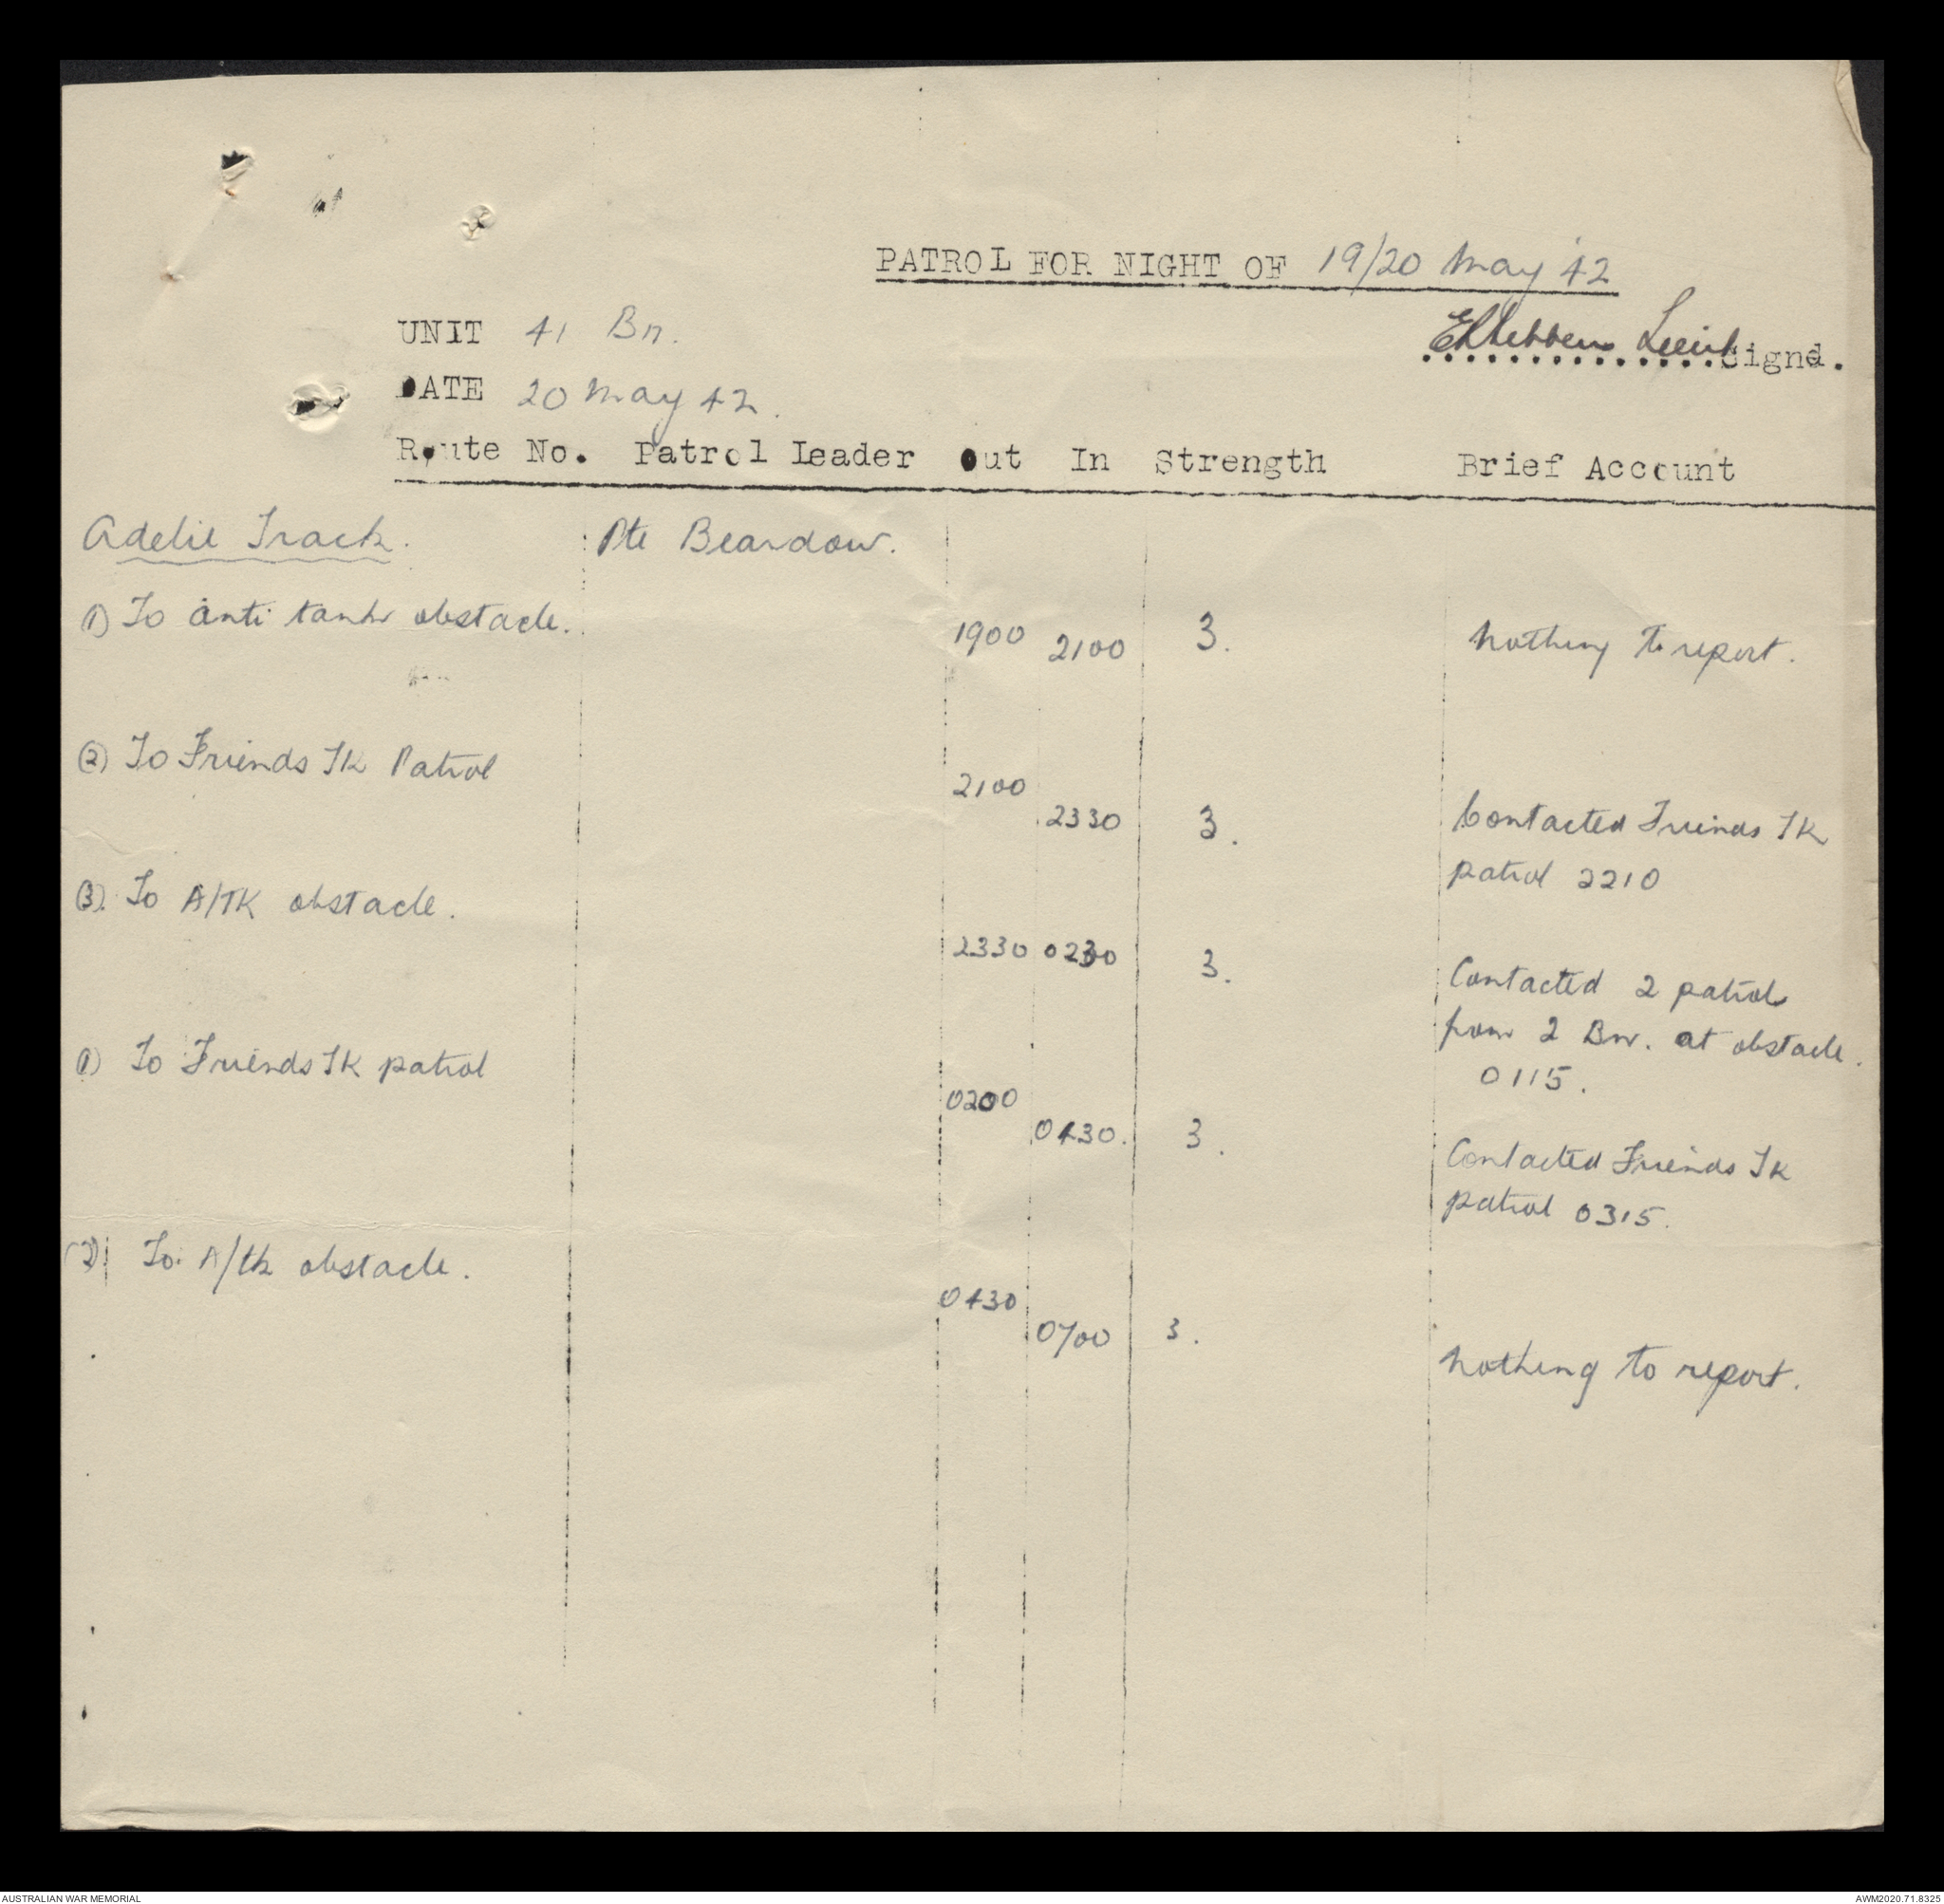 PATROL FOR NIGHT OF 19/20 May 42
UNIT 41 Bn.
Lieut Signd.
DATE 20 May 42.
Route No. Patrol Leader Out In Strength Brief Account
Adelie Track. Pte Beardow.
(1) To anti tank obstacle. 1900 2100 3. Nothing to report.
(2) To Friends Tk Patrol 2100 2330 3. Contacted Friends Tk
patrol 2210
(3). To A/TK obstacle. 2330 0230 3. Contacted 2 patrols
from 2 Bn. at obstacle.
0115.
(1) To Friends Tk patrol 0200 0430. 3. Contacted Friends Tk
patrol 0315.
(2) To A/tk obstacle. 0430 0700 3. Nothing to report.
AUSTRALIAN WAR MEMORIAL
AWM2020.71.8325